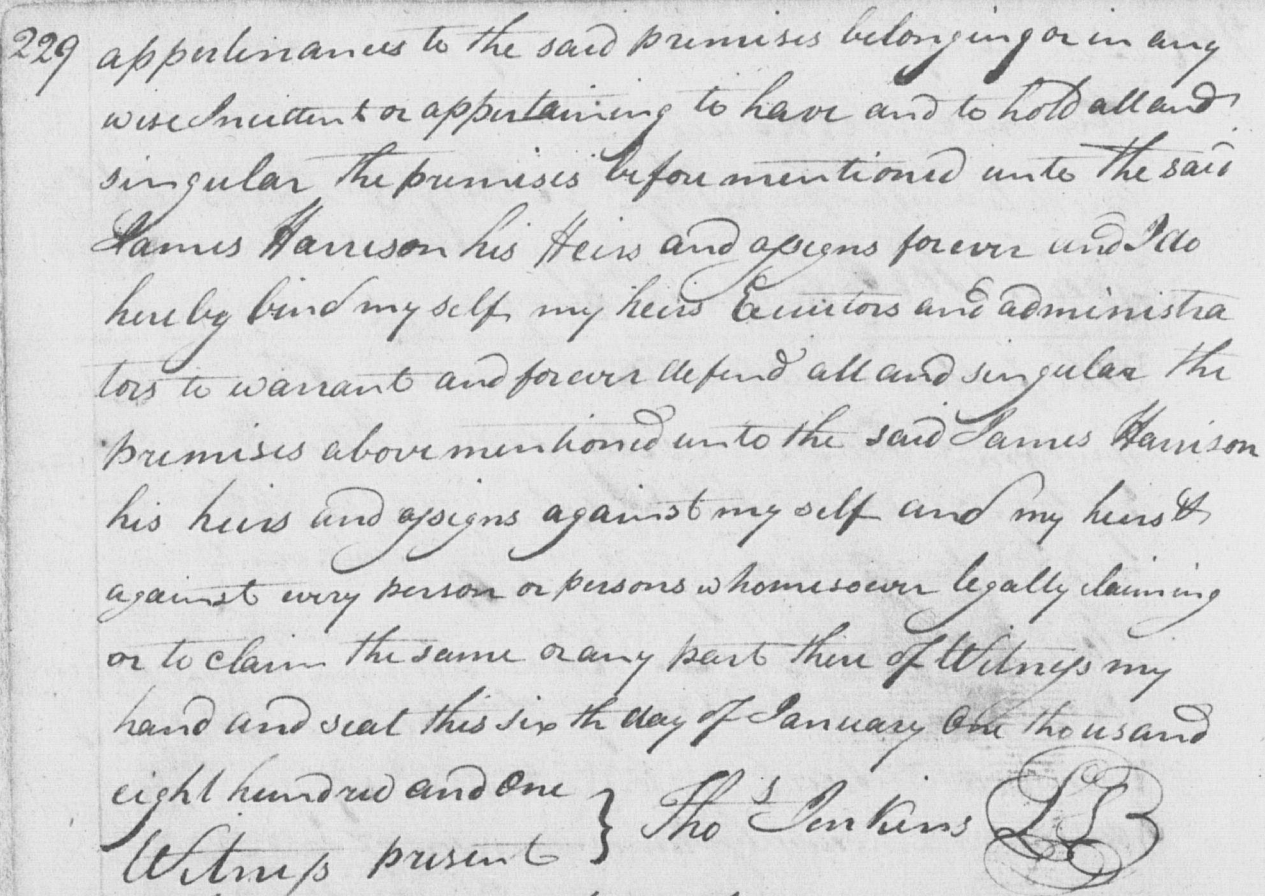 229 appertinances to the said premises belonging or in any
wise Incittent or appertaining to have and to hold all and
singular the premises before mentioned unto the said
James Harrison his Heirs and assigns forever and I do
hereby bind my self my heirs Executors and administra
tors to warrant and forever defend all and singular the
premises above mentioned unto the said James Harrison
his heirs and assigns against my self and my heirs &
against every person or persons whomesoever legally claiming
or to claim the same or any part there of Witness my
hand and seal this sixth day of January One thousand
eight hundred and One
Witness present } Thos Jenkins LS